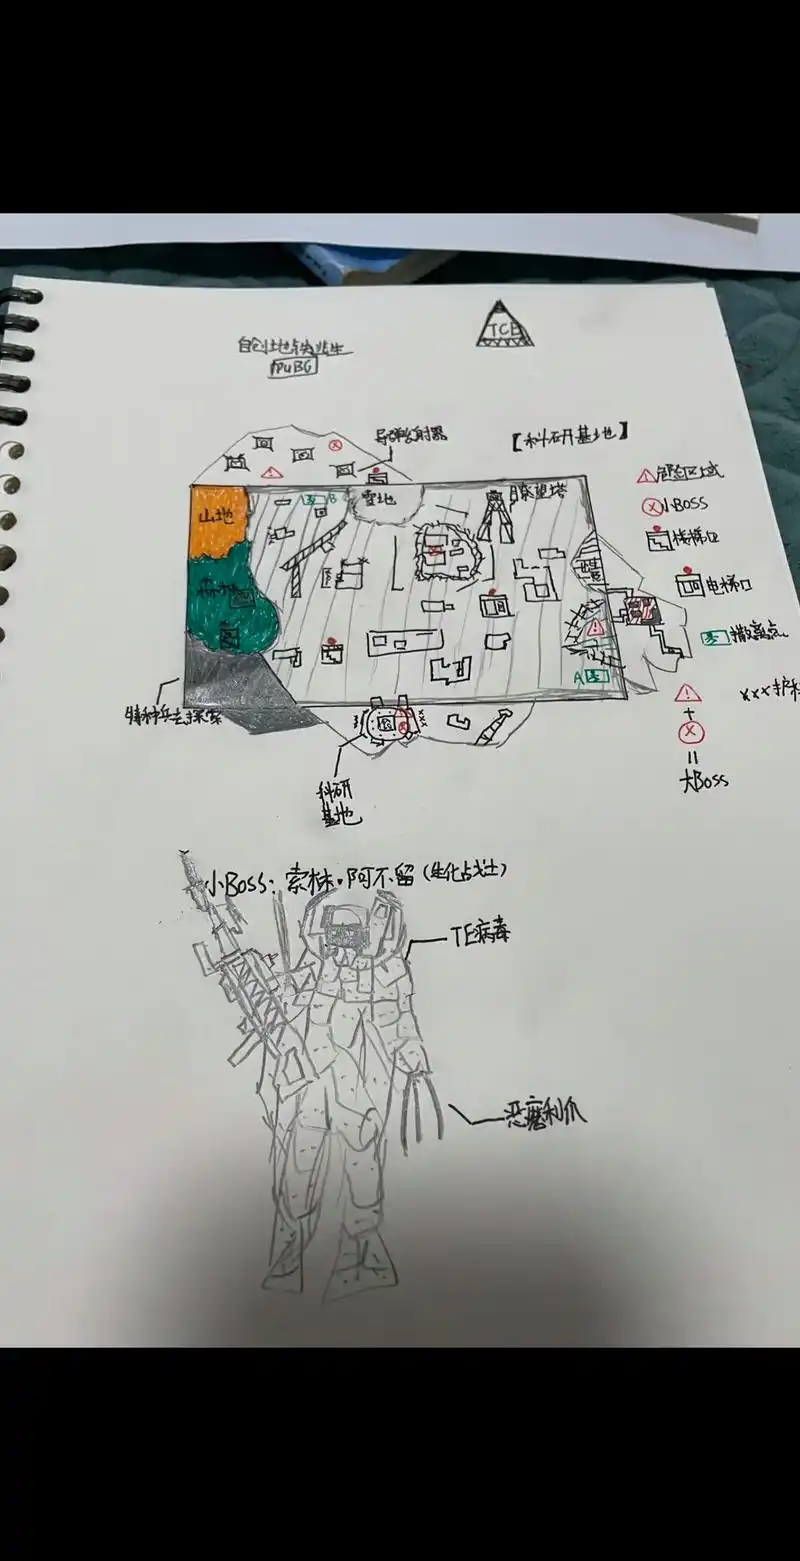 自创地铁逃生
PUBG
TCE
导弹发射器
【科研基地】
山地
B
雪地
瞭望塔
危险区域
小BOSS
楼梯口
电梯口
撤离点
森林
A
特种兵去探索
xxx
科研
基地
xxx护栏
+
=
大Boss
小BOSS：索林·阿不留（生化战士）
TE病毒
恶魔利爪